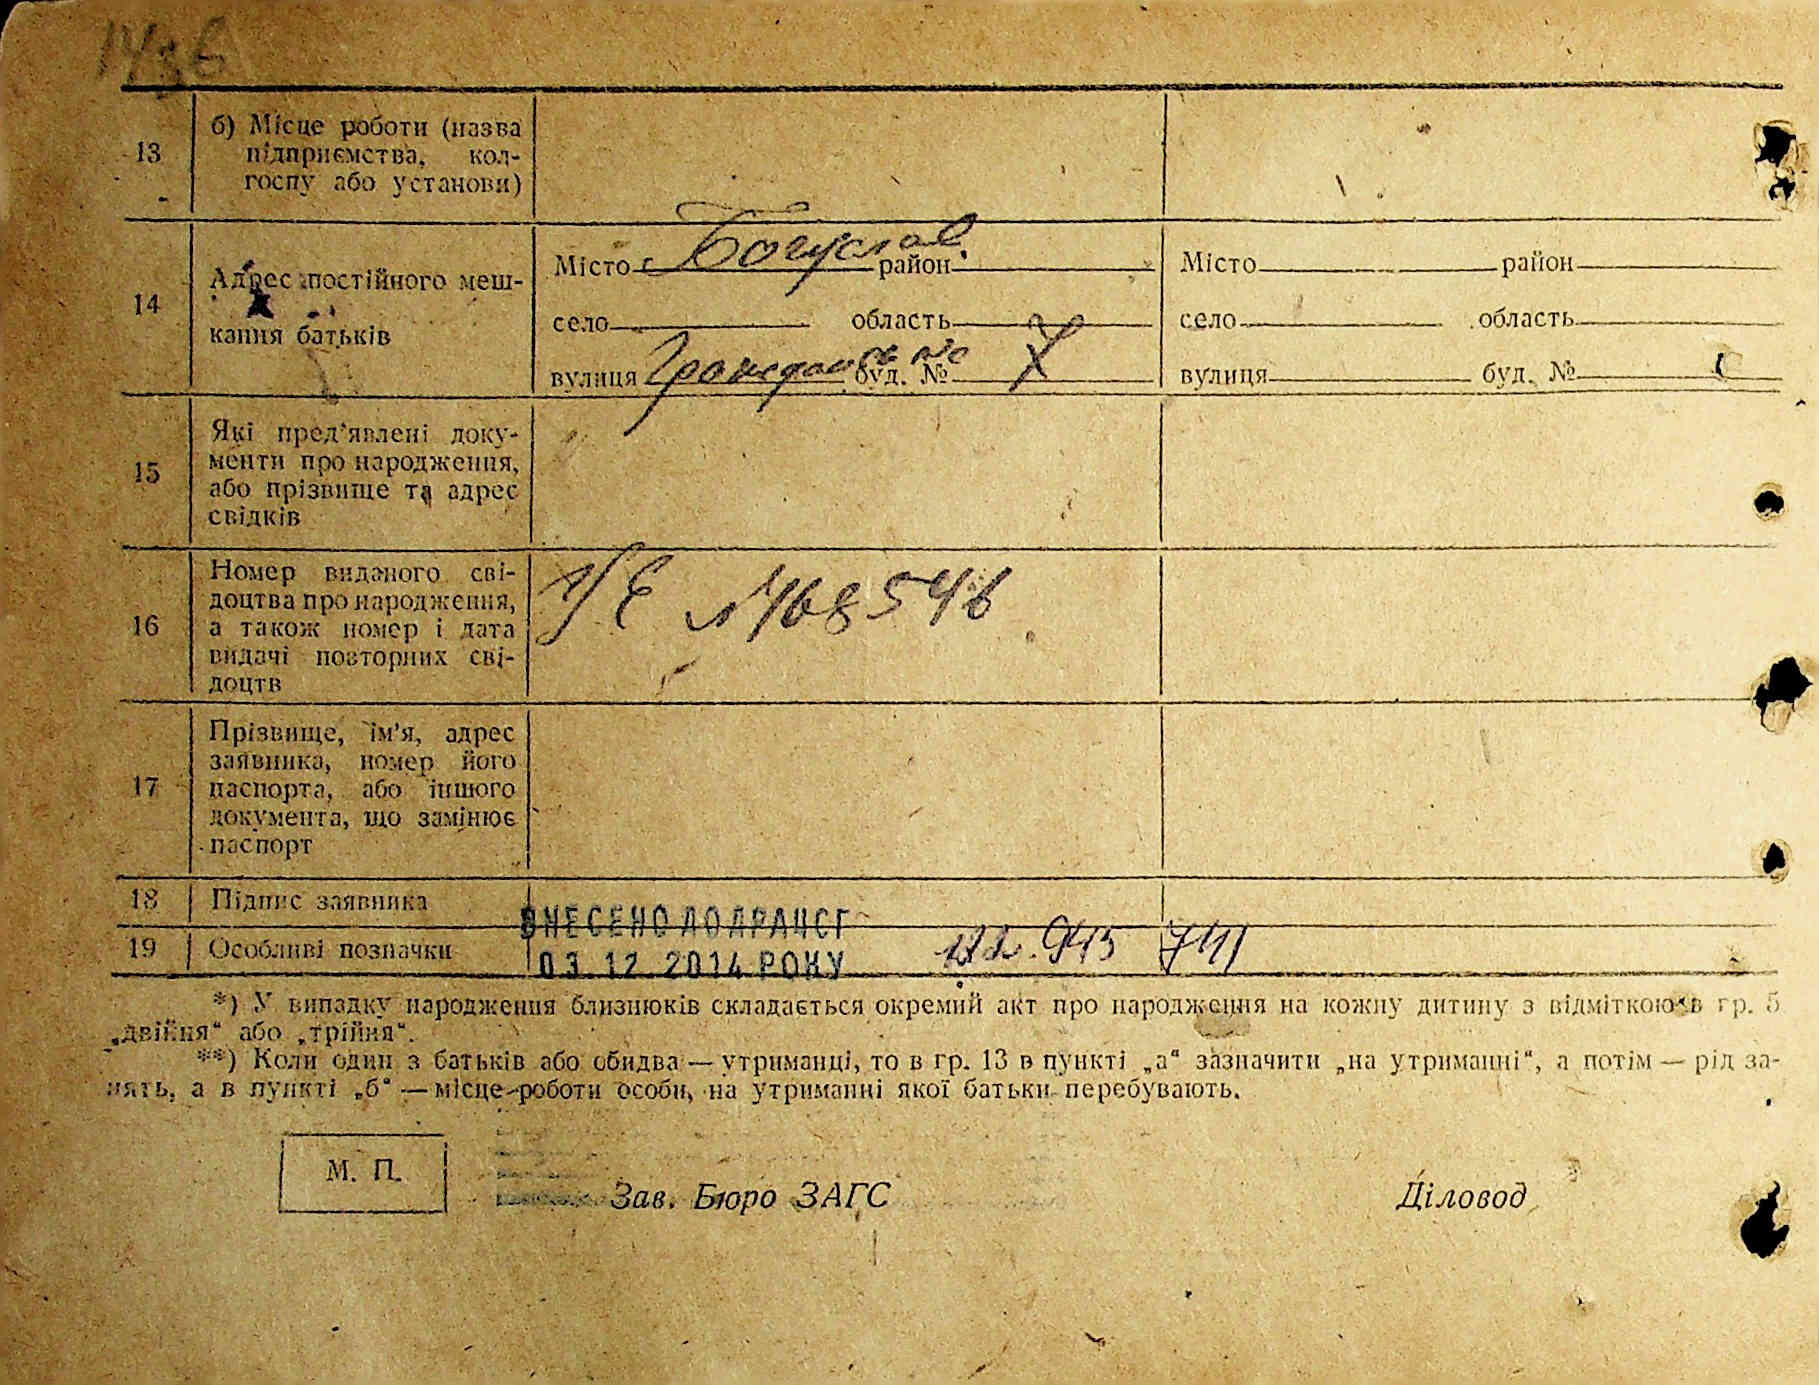 13
б) Місце роботи (назва
підприємства, кол-
госпу або установи)
14
Адрес постійного меш-
кання батьків
Місто Богуслав район
село область
вулиця буд. №
Місто район
село область
вулиця буд. №
15
Які пред'явлені доку-
менти про народження,
або прізвище та адрес
свідків
16
Номер виданого сві-
доцтва про народження,
а також номер і дата
видачі повторних сві-
доцтв
№ 468546
17
Прізвище, ім'я, адрес
заявника, номер його
паспорта, або іншого
документа, що замінює
паспорт
18 Підпис заявника
ВНЕСЕНО ДО ДРАЦСГ
19 Особливі позначки
03 12 2014 РОКУ
*) У випадку народження близнюків складається окремий акт про народження на кожну дитину з відміткою в гр. 5
„двійня“ або „трійня“.
**) Коли один з батьків або обидва — утриманці, то в гр. 13 в пункті „а“ зазначити „на утриманні“, а потім — рід за-
нять, а в пункті „б“ — місце роботи особи, на утриманні якої батьки перебувають.
М. П.
Зав. Бюро ЗАГС Діловод